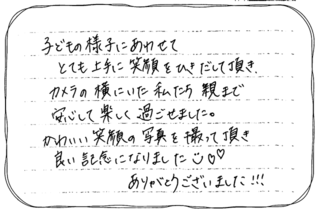 子どもの様子にあわせて
とても上手に笑顔をひきだして頂き、
カメラの横にいた私たち親まで
安心して楽しく過ごせました。
かわいい笑顔の写真を撮って頂き
良い記念になりました
ありがとうございました!!!